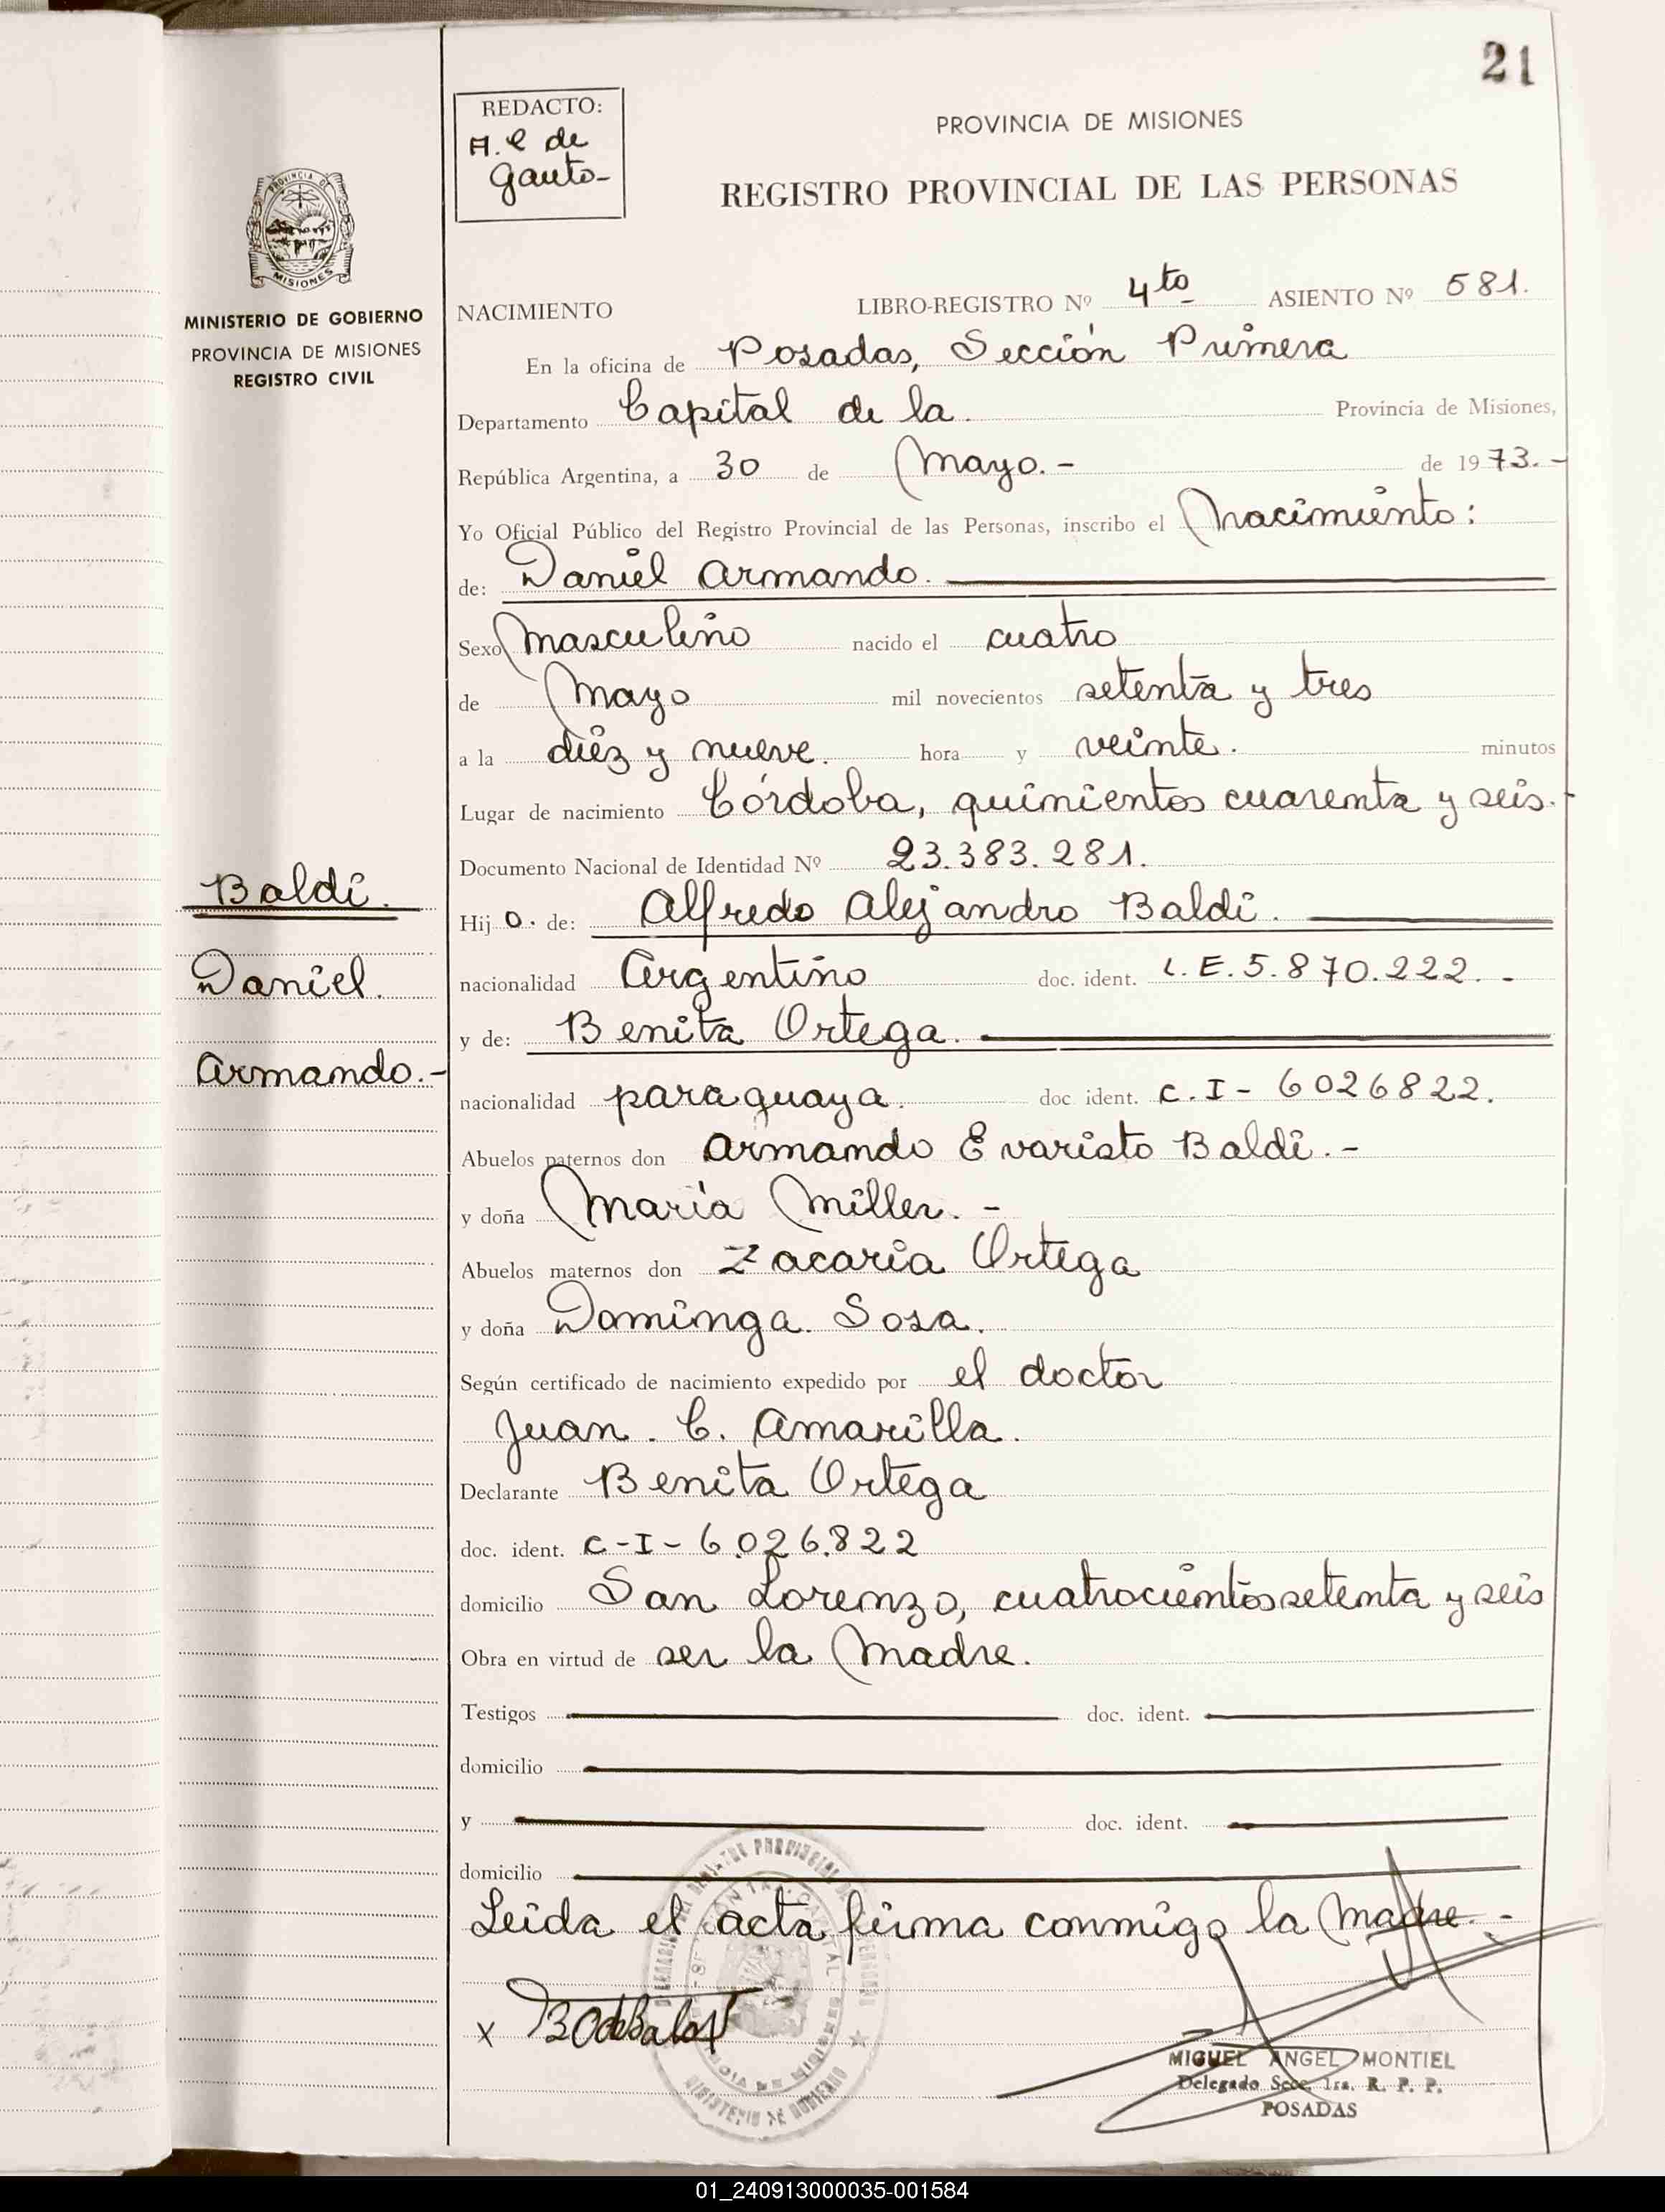 21
REDACTO:
A. C de
Gauto-
PROVINCIA DE MISIONES
REGISTRO PROVINCIAL DE LAS PERSONAS
PROVINCIA DE
MISIONES
MINISTERIO DE GOBIERNO
PROVINCIA DE MISIONES
REGISTRO CIVIL
NACIMIENTO LIBRO-REGISTRO Nº 4to ASIENTO Nº 581.
En la oficina de Posadas, Sección Primera
Departamento Capital de la. Provincia de Misiones,
República Argentina, a 30 de Mayo.- de 1973.-
Yo Oficial Público del Registro Provincial de las Personas, inscribo el Nacimiento:
de: Daniel Armando.
Sexo Masculino nacido el cuatro
de Mayo mil novecientos setenta y tres
a la diéz y nueve. hora y veinte. minutos
Lugar de nacimiento Córdoba, quinientos cuarenta y seis.-
Documento Nacional de Identidad Nº 23.383.281.
Baldi.
Daniel.
Armando.-
Hijo. de: Alfredo Alejandro Baldi.
nacionalidad Argentino doc. ident. L.E.5.870.222.-
y de: Benita Ortega.
nacionalidad paraguaya. doc. ident. C.I- 6026822.
Abuelos paternos don Armando Evaristo Baldi.-
y doña María Miller.-
Abuelos maternos don Zacaria Ortega
y doña Dominga Sosa.
Según certificado de nacimiento expedido por el doctor
Juan. C. Amarilla.
Declarante Benita Ortega
doc. ident. C-I-6.026.822
domicilio San Lorenzo, cuatrocientos setenta y seis
Obra en virtud de ser la Madre.
Testigos doc. ident.
domicilio
y doc. ident.
domicilio
Leida el acta firma conmigo la Madre.-
x
MIGUEL ANGEL MONTIEL
Delegado Secc. 1ra. R. P. P.
POSADAS
MINISTERIO DE GOBIERNO
01_240913000035-001584